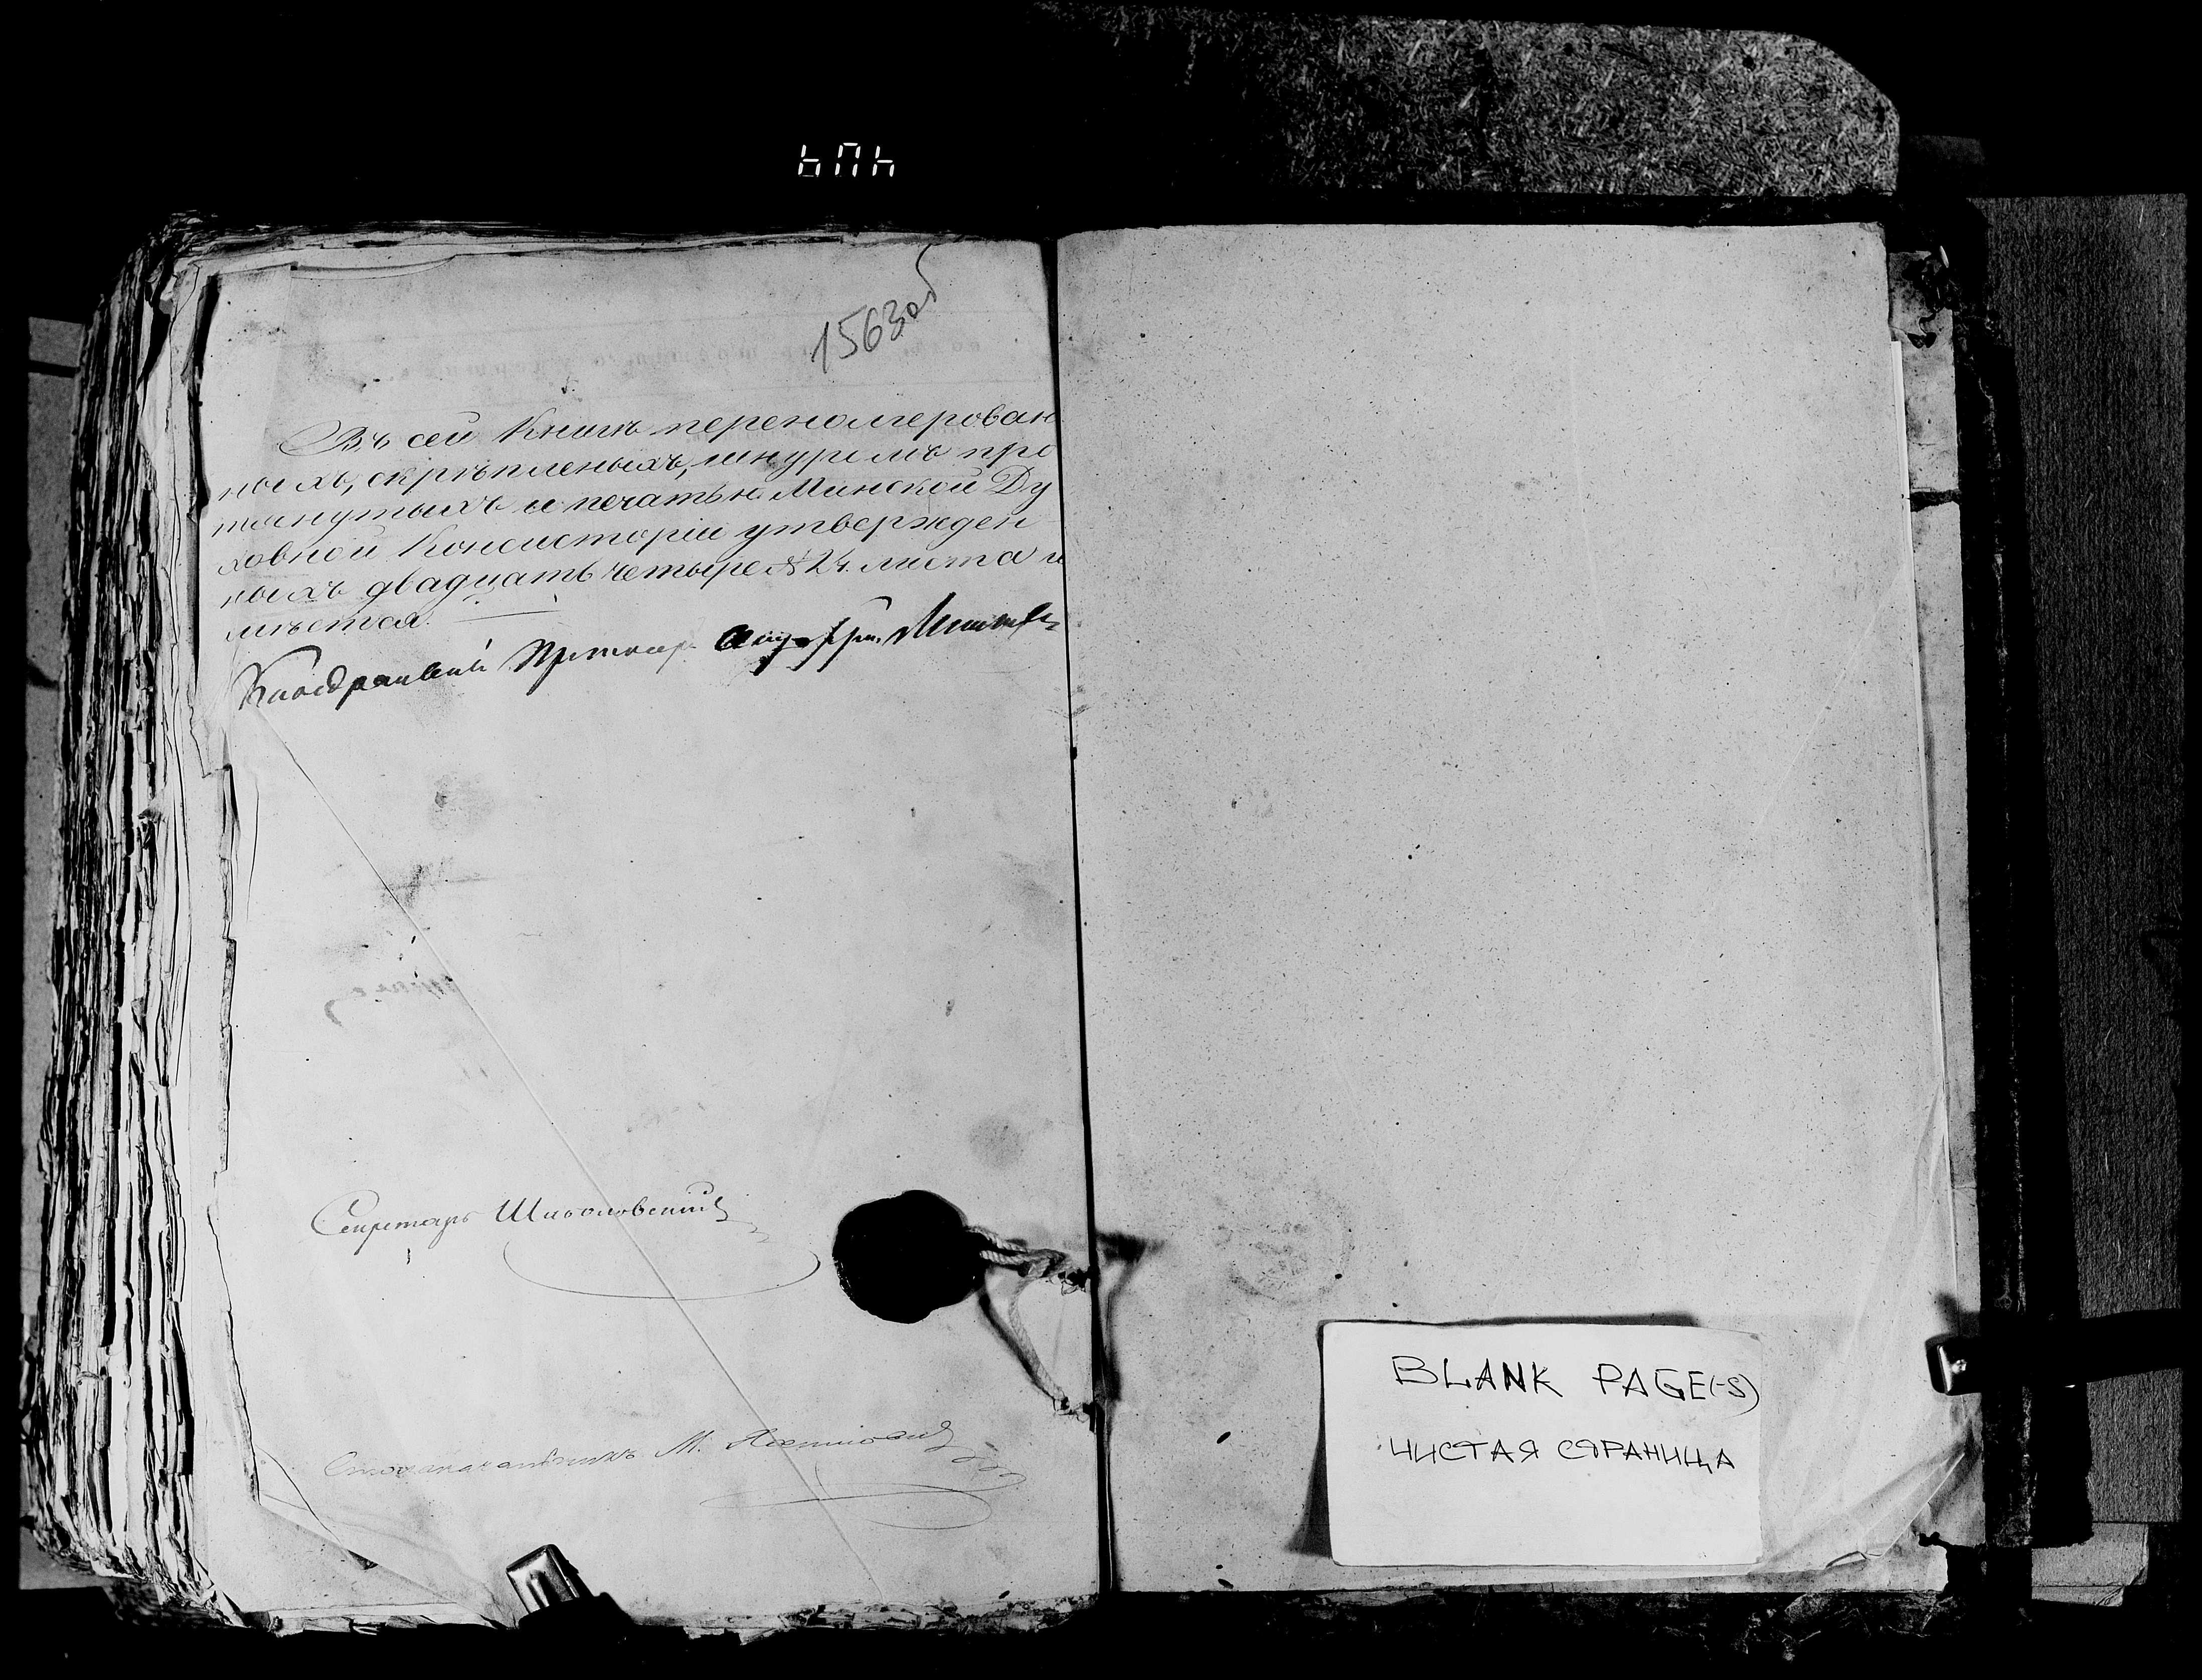 1563об
Въ сей Книгѣ переномерован
ныхъ, скрѣпленыхъ, шнуромъ про
тянутыхъ и печатью Минской Ду
ховной Консисторіи утвержден
ныхъ двадцать четыре № 24. листа и
мѣется.
Каѳедральный Протоіер.
Секретарь
Столоначальникъ М.
BLANK PAGE(-S)
ЧИСТАЯ СТРАНИЦА